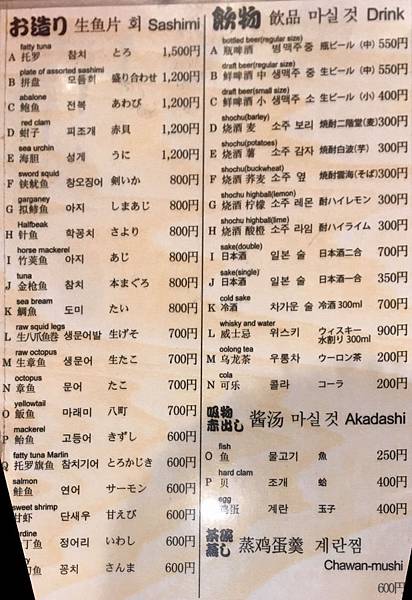 お造り 生鱼片 회 Sashimi
fatty tuna
A 托罗 참치 とろ 1,500円
plate of assorted sashimi
B 拼盘 모듬회 盛り合わせ 1,200円
abalone
C 鲍鱼 전복 あわび 1,200円
red clam
D 蚶子 피조개 赤貝 1,200円
sea urchin
E 海胆 성게 うに 1,200円
sword squid
F 铗鱿鱼 창오징어 剣いか 800円
garganey
G 拟鲹鱼 아지 しまあじ 800円
Halfbeak
H 针鱼 학꽁치 さより 800円
horse mackerel
I 竹荚鱼 아지 あじ 800円
tuna
J 金枪鱼 참치 本まぐろ 800円
sea bream
K 鯛鱼 도미 たい 800円
raw squid legs
L 生八爪鱼卷 생문어발 生げそ 700円
raw octopus
M 生章鱼 생문어 生たこ 700円
octopus
N 章鱼 문어 たこ 700円
yellowtail
O 鰤鱼 마래미 八町 700円
mackerel
P 鲐鱼 고등어 きずし 600円
fatty tuna Marlin
Q 托罗旗鱼 참치기어 とろかじき 600円
salmon
鲑鱼 연어 サーモン 600円
sweet shrimp
甘虾 단새우 甘えび 600円
丁鱼 정어리 いわし 600円
鱼 꽁치 さんま 600円
飲物 飲品 마실 것 Drink
bottled beer(regular size)
A 瓶啤酒 병맥주 중 瓶ビール (中) 550円
draft beer(regular size)
B 鲜啤酒 中 생맥주 중 生ビール (中) 550円
draft beer(small size)
C 鲜啤酒 小 생맥주 소 生ビール (小) 400円
shochu(barley)
D 烧酒 麦 소주 보리 焼酎二階堂(麦) 300円
shochu(potatoes)
E 烧酒 薯 소주 감자 焼酎白波(芋) 300円
shochu(buckwheat)
F 烧酒 荞麦 소주 옆 焼酎雲海(そば) 300円
shochu highball(lemon)
G 烧酒 柠檬 소주 레몬 酎ハイレモン 300円
shochu highball(lime)
H 烧酒 酸橙 소주 라임 酎ハイライム 300円
sake(double)
I 日本酒 일본 술 日本酒二合 700円
sake(single)
J 日本酒 일본 술 日本酒一合 350円
cold sake
K 冷酒 차가운 술 冷酒 300ml 700円
whisky and water
L 威士忌 위스키 ウィスキー 900円
水割り 300ml
oolong tea
M 乌龙茶 우롱차 ウーロン茶 200円
cola
N 可乐 콜라 コーラ 200円
吸物
赤出し 酱汤 마실 것 Akadashi
fish
O 鱼 물고기 魚 250円
hard clam
P 贝 조개 蛤 400円
egg
鸡蛋 계란 玉子 400円
茶碗
蒸し 蒸鸡蛋羹 계란찜
Chawan-mushi
600円